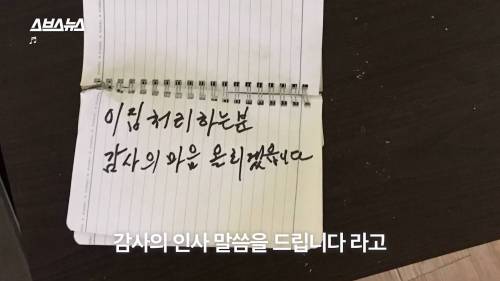 스브스뉴스
이집처리하는분
감사의 마음 올리겠읍니다
감사의 인사 말씀을 드립니다 라고